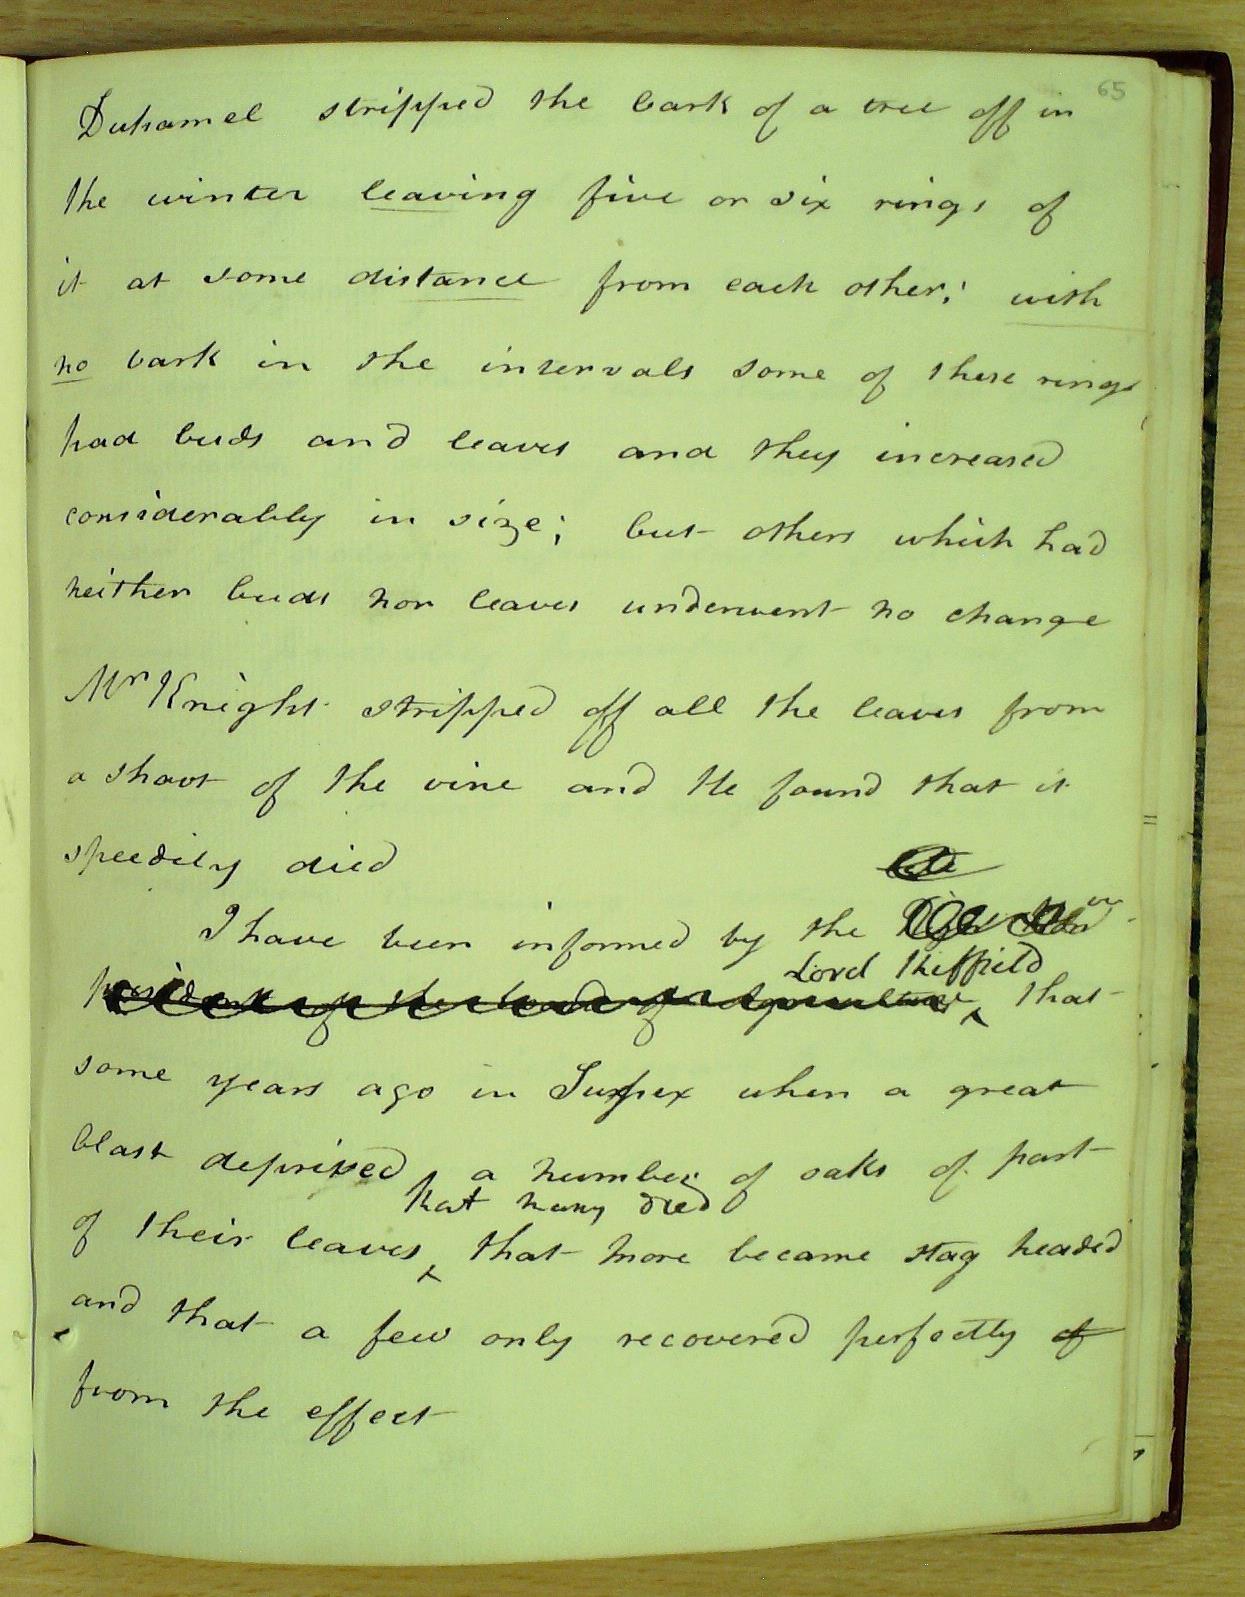 65
Duhamel stripped the bark of a tree off in
the winter leaving five or six rings of
it at some distance from each other; with
no bark in the intervals some of these rings
had buds and leaves and they increased
considerably in size; but others which had
neither buds nor leaves underwent no change
Mr Knight stripped off all the leaves from
a shoot of the vine and He found that it
speedily died
I have been informed by the
Lord Sheffield
president of the board of Agriculture that
some years ago in Sussex when a great
blast deprived a number of oaks of part
that many died
of their leaves that more became stag headed
and that a few only recovered perfectly of
from the effect